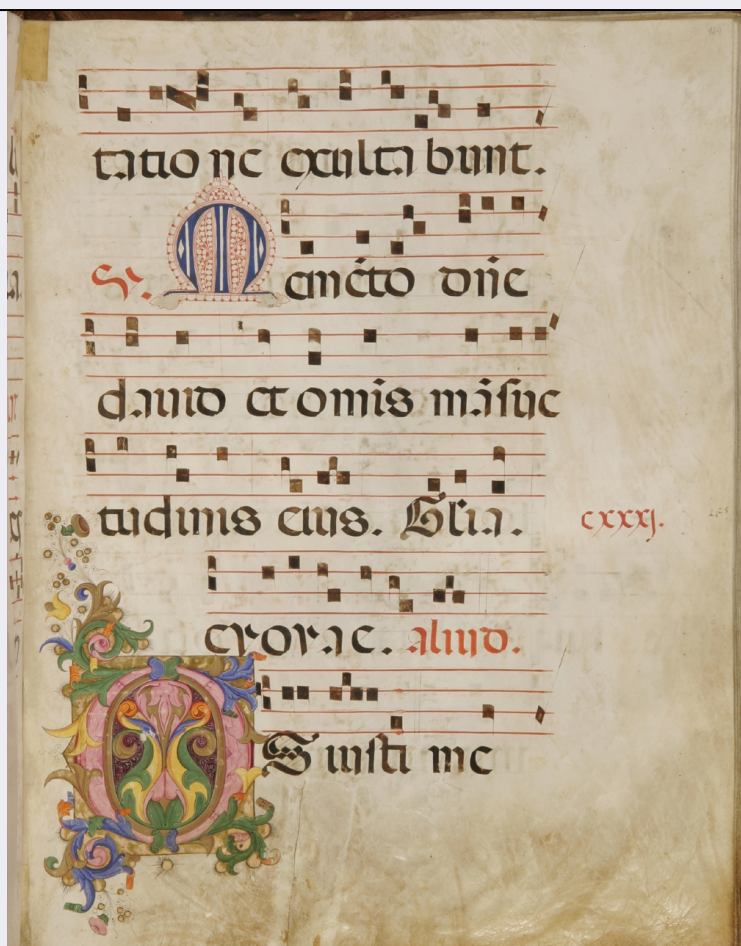 tatione exultabunt.
Ps. Memēto dñe
dauid et omĩs mãsue
tudinis eius. Glia. cxxxj.
evovae. aliud.
OS iusti me